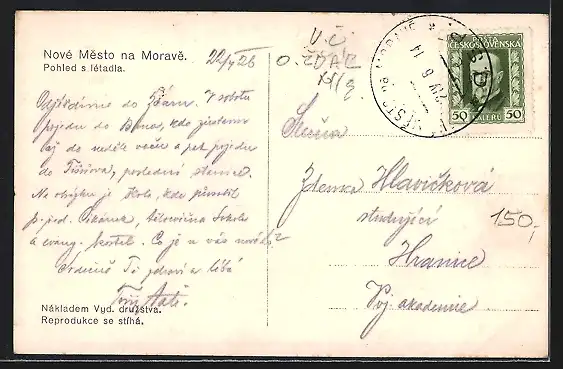 Nové Město na Moravě.
Pohled s létadla.
22/V 26
V. č.
O. ŽĎÁR
XI/g
POŠTA
ČESKOSLOVENSKÁ
50 HALÉŘŮ 50
Odjíždíme do Žďáru. V sobotu
pojedu do Brna, kde zůstanu
až do neděle večer a pak pojedu
do Tišnova, poslední stanice.
Na obrázku je škola, kde působil
p. řed. Čikánek, tělocvična Sokola
a evang. kostel. Co je u vás nového?
Srdečně Tě zdraví a líbá
Tvůj
Slečna
Zdenka Hlavičková
studující
Hranice
Voj. akademie
150,-
Nákladem Vyd. družstva.
Reprodukce se stíhá.